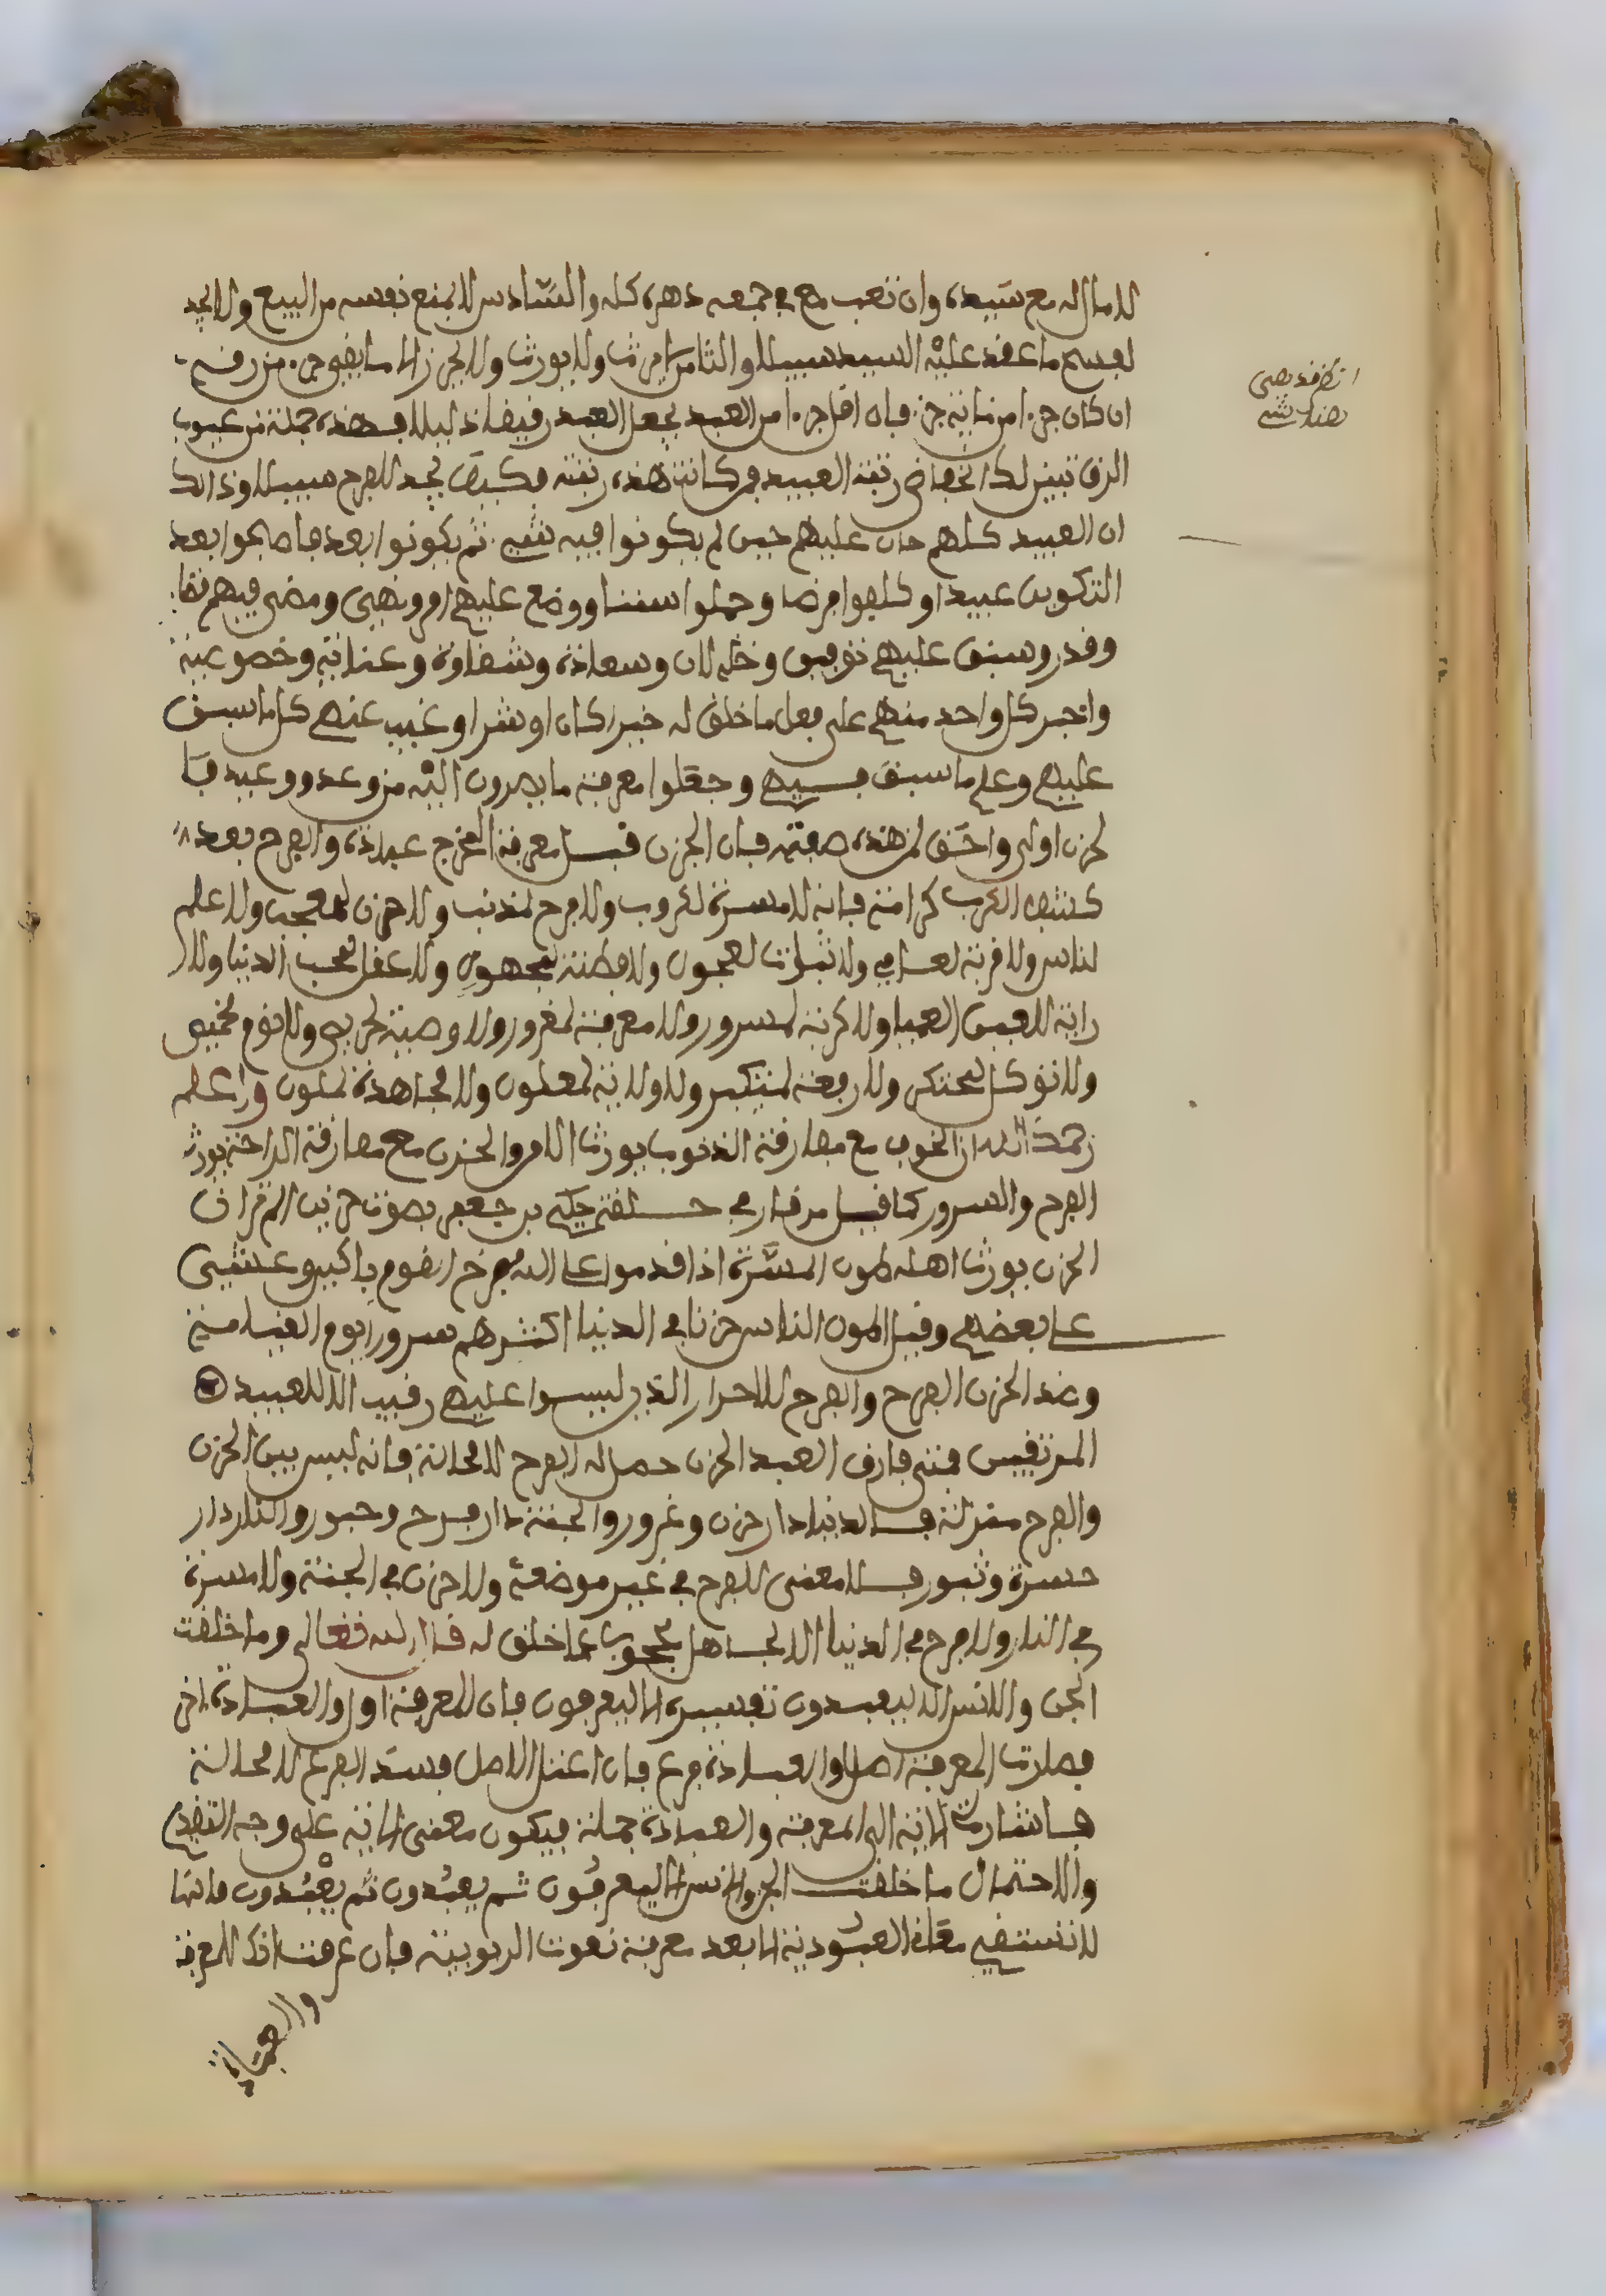 لا مال له مع سيده وان تعب مع في جمعه دهره كله والسادس لا يمنع نفسه من البيع ولا يجد
لفسح ما عقد عليه السيد سبيلا والثامن لا يرث ولا يورث ولا يحرز الا ما بقي جزء من رقه
ان كان جزء من ثمانية جزء فان اقل جزء من العبد يجعل العبد رقيقا ذليلا فهذه جملة من عيوب
الرق تبين لك انخفاض رتبة العبيد فمن كانت هذه رتبته فكيف يجد للفرح سبيلا وذالك
ان العبيد كلهم حان عليهم حين لم يكونوا فيه شيء ثم يكونوا بعدها صاروا بعد
التكوين عبيدا وكلفوا فرضا وحملوا سننا ووضع عليهم امر ونهي ومضى فيهم قضاء
وقدر وسبق عليهم توفيق وخذلان وسعادة وشقاوة وعناية وخصوصية
واجبر كل واحد منهم على فعل ما خلق له خيرا كان او شرا وغيب عنهم كل ما سبق
عليهم وعلم ما سبق فيهم وجهلوا معرفة ما يصيرون اليه من وعد ووعيد فما
لحزن اولى واحق لمن هذه صفته فان الحزن قبل معرفة المخرج عبادة والفرح بعد
كشف الكرب كرامة فانه لا مسرة لمكروب ولا فرح لمذنب ولا حزن لمعجب ولا علم
لناس ولا قربة لعاصي ولا ثبات لعجول ولا فطنة لمجهول ولا عقل لمحب الدنيا ولا
راية للعين العميا ولا كربة لمسرور ولا معرفة لمغرور ولا وصية لحريص ولا نوم لمخيف
ولا توكل لمحتكر ولا رفعة لمتكبر ولا ولاية لمعلول ولا مجاهدة لملول واعلم
رحمك الله ان الخوف مع مفارقة الذنوب يورث الامن والحزن مع مفارقة الراحة يورث
الفرح والسرور كما قيل من قرا في حلقة حكيم بن جعفر بصوت حزين القران
الحزن يورث اهله طول المسرة اذا قدموا على الله فخرج القوم باكين وغشي
على بعضهم وقيل اطول الناس حزنا في الدنيا اكثرهم سرورا يوم القيامة
وضد الحزن الفرح والفرح للاحرار الذي ليسوا عليهم رقيب لا للعبيد
المرتقبين فمتى فارق العبد الحزن حصل له الفرح لا محالة فانه ليس بين الحزن
والفرح منزلة فالدنيا دار حزن وغرور والجنة دار فرح وحبور والنار دار
حسرة وثبور فلا معنى للفرح في غير موضعه ولا حزن في الجنة ولا مسرة
في النار ولا فرح في الدنيا الا لجاهل محجوب بما خلق له قال الله تعالى وما خلقت
الجن والانس الا ليعبدون تفسيره الا ليعرفون فان المعرفة اول والعبادة اخر
فصارت المعرفة اصلا والعبادة فرع فان اعتل الاصل فسد الفرع لا محالة
فاشارت الاية الى المعرفة والعبادة جملة فيكون معنى الاية على وجه التقديم
والاحتمال ما خلقت الجن والانس الا ليعرفون ثم يعبدون ثم يعبدون فانها
لا تستقيم مقام العبودية الا بعد معرفة نعوت الربوبية فان عرفت اذا المعرفة
والعبادة